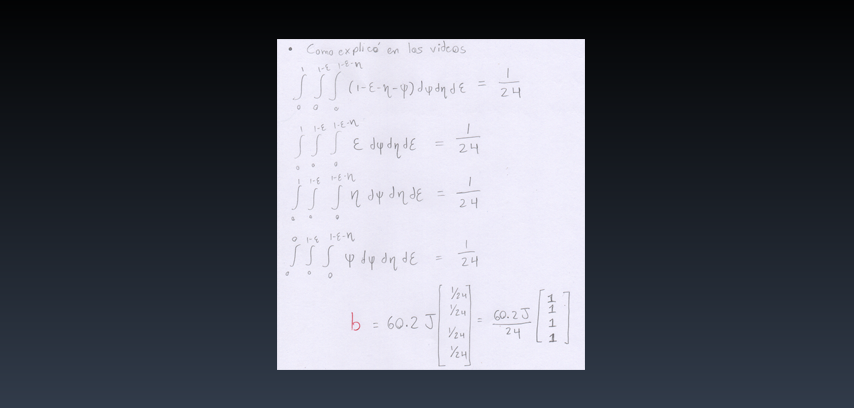 • Como explicó en los videos
∫₀¹ ∫₀^(1-ε) ∫₀^(1-ε-η) (1-ε-η-ψ) dψ dη dε = 1/24
∫₀¹ ∫₀^(1-ε) ∫₀^(1-ε-η) ε dψ dη dε = 1/24
∫₀¹ ∫₀^(1-ε) ∫₀^(1-ε-η) η dψ dη dε = 1/24
∫₀⁰ ∫₀^(1-ε) ∫₀^(1-ε-η) ψ dψ dη dε = 1/24
b = 60.2 J [1/24 1/24 1/24 1/24] = 60.2 J/24 [1 1 1 1]